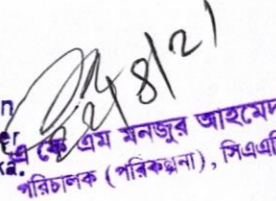 24/8/21
এ কে এম মনজুর আহমেদ
পরিচালক (পরিকল্পনা), সিএএ